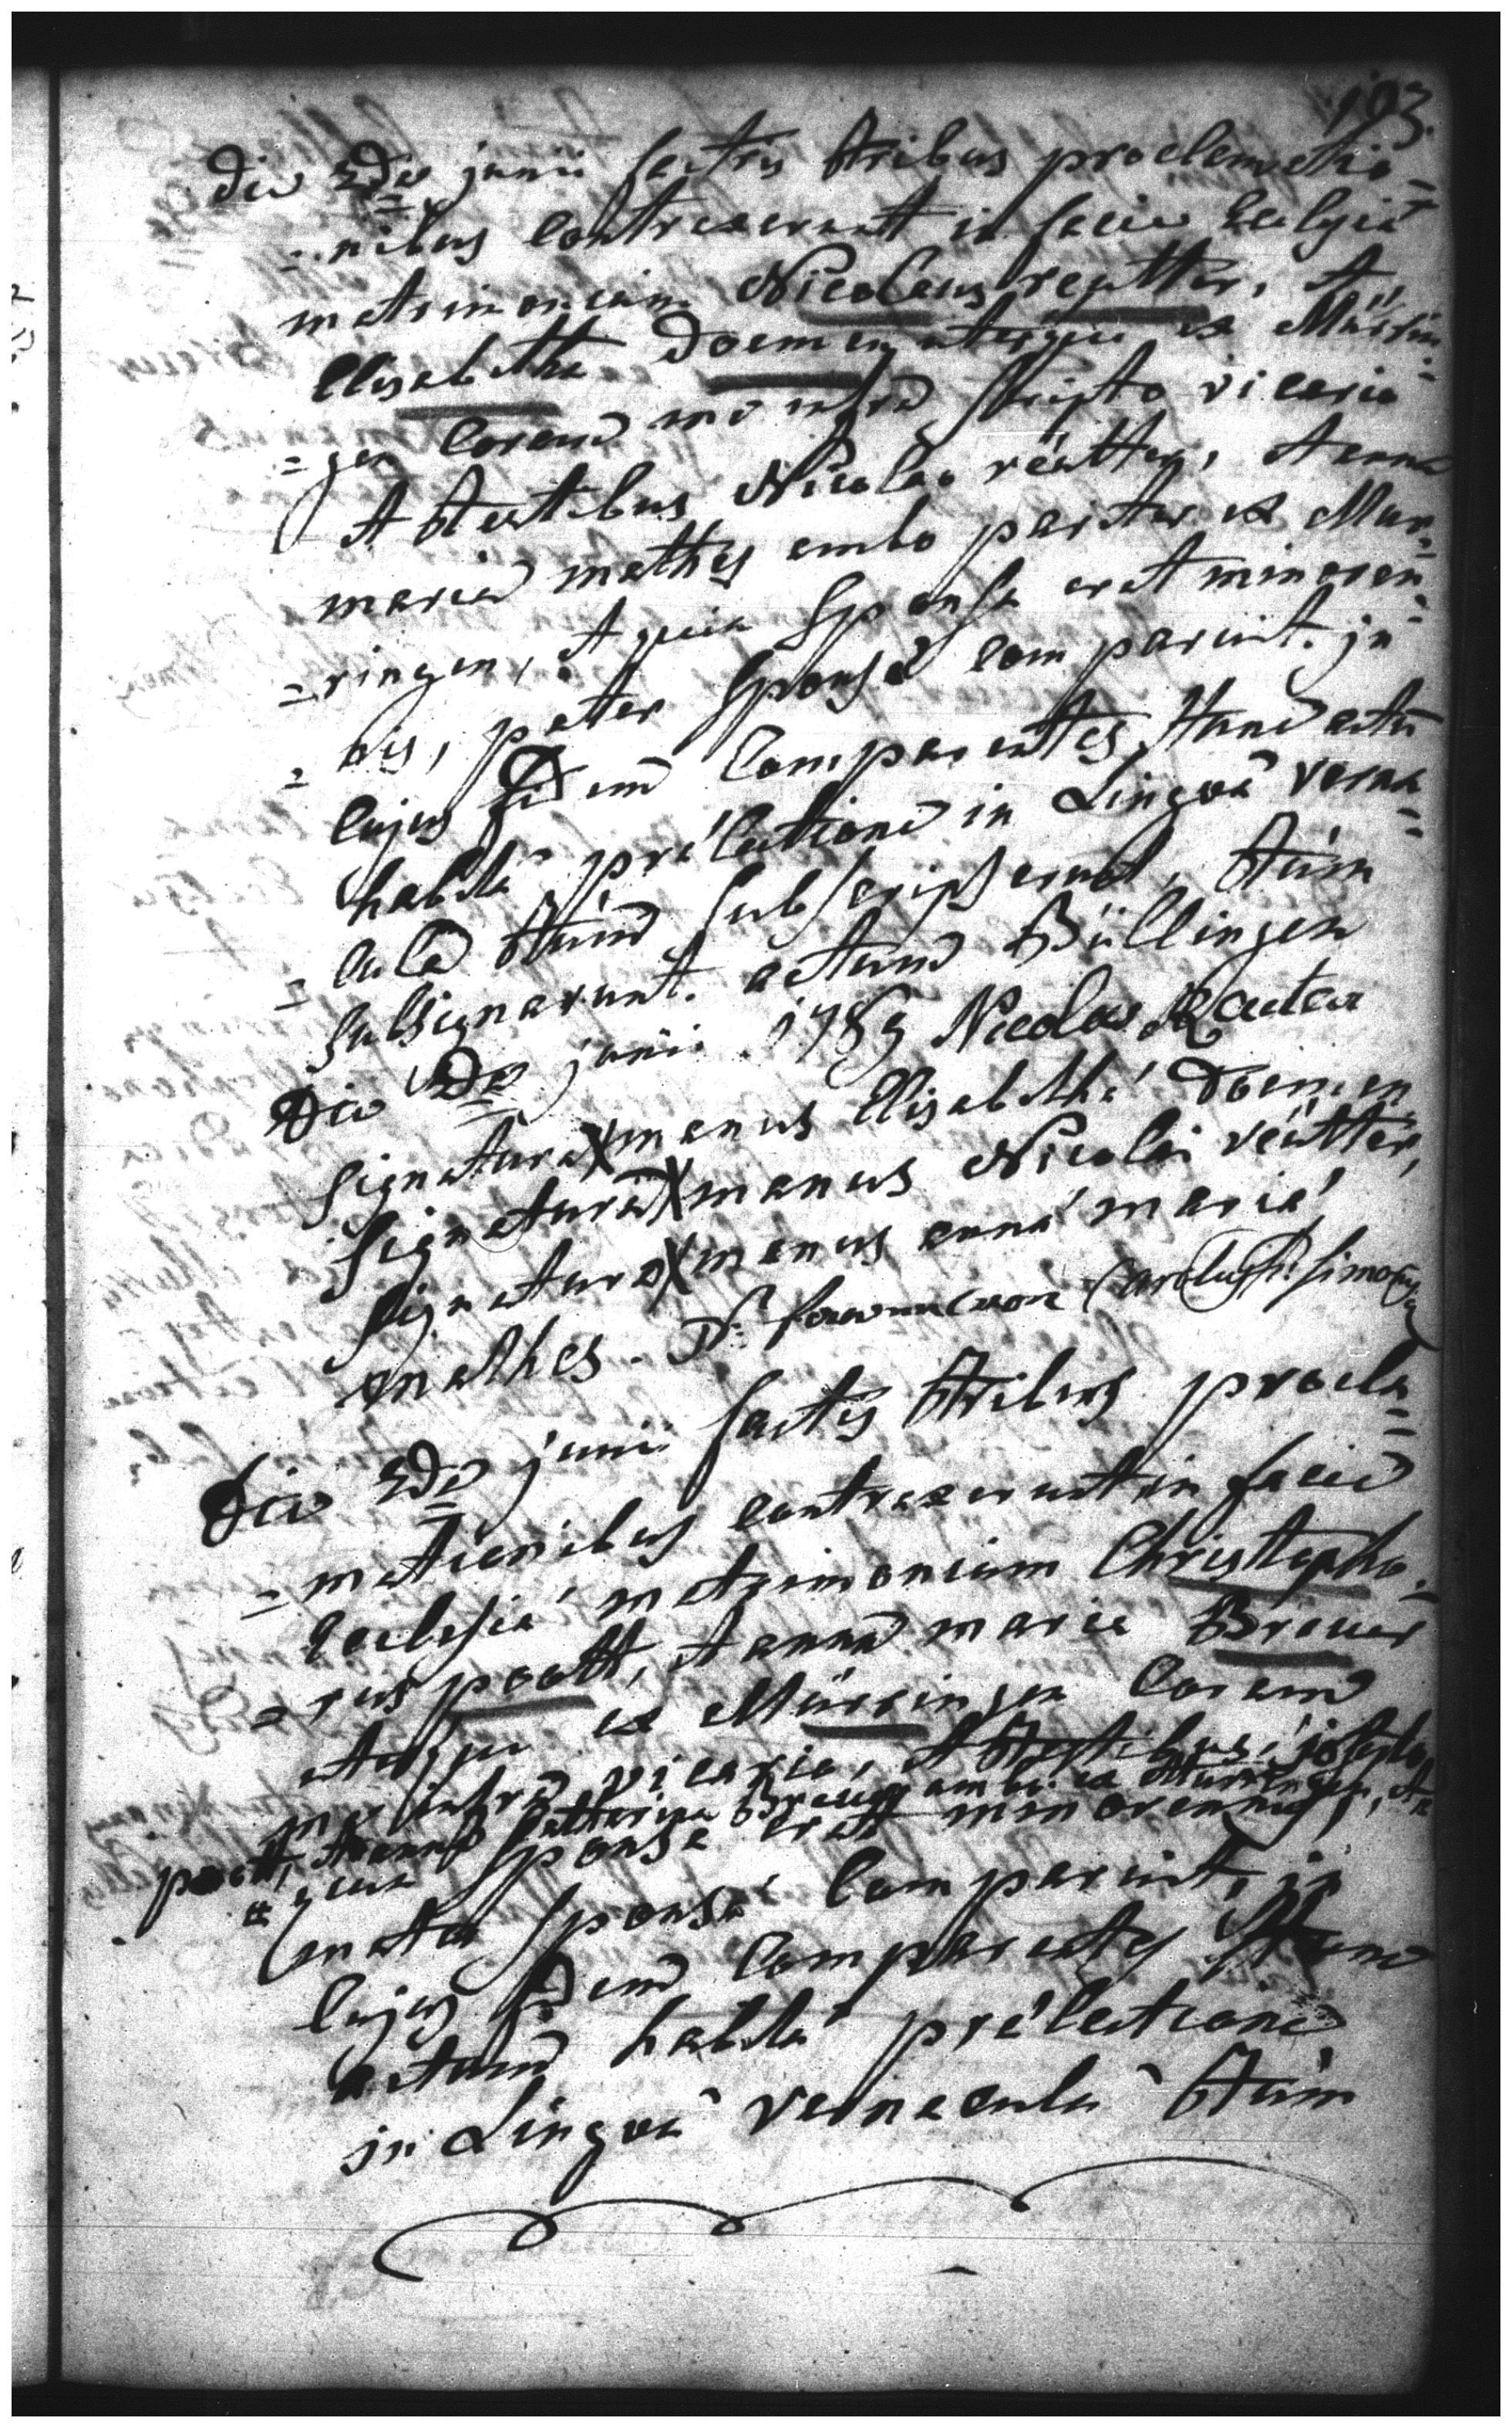 103.
Die 2da junii factis tribus proclamatio=
=nibus contraxerunt in facie Eccleysiae
matrimonium Nicolaus reutter, et
Elisabetha Doemen uterque ex Mürrin=
=gen coram me infra scripto vicario
et testibus Nicolao reütter, et anna
maria mathes ambo pariter ex Mür=
=ringen, et quia sponsa erat minoren=
=nis, pater sponsae comparuit. in
cujus fidem comparentes, hunc actum
habitâ praelectione in Lingvâ verna=
=culâ tum subscripserunt, tum
subsignarunt. actum Büllingen
Die 2da junii 1789 Nicolas Reuter
signatura X manus Elisabethae Doemen
signatura X manus Nicolai reütter,
signatura X manus annae mariae
mathes.
Die 2da junii factis tribus procla=
=mationibus contraxerunt in facie
Ecclesiae matrimonium Christopho=
=rus poott, et anna maria Brauer
uterque ex Mürringen coram
me infra vicario, et testibus, josepho
poott, et anna Catharina Brauer ambo ex Mürringen, et
quia sponsa erat minorennis,
mater sponsae comparuit, in
cujus fidem comparentes hunc
actum habitâ praelectione
in Lingvâ vernaculâ tum